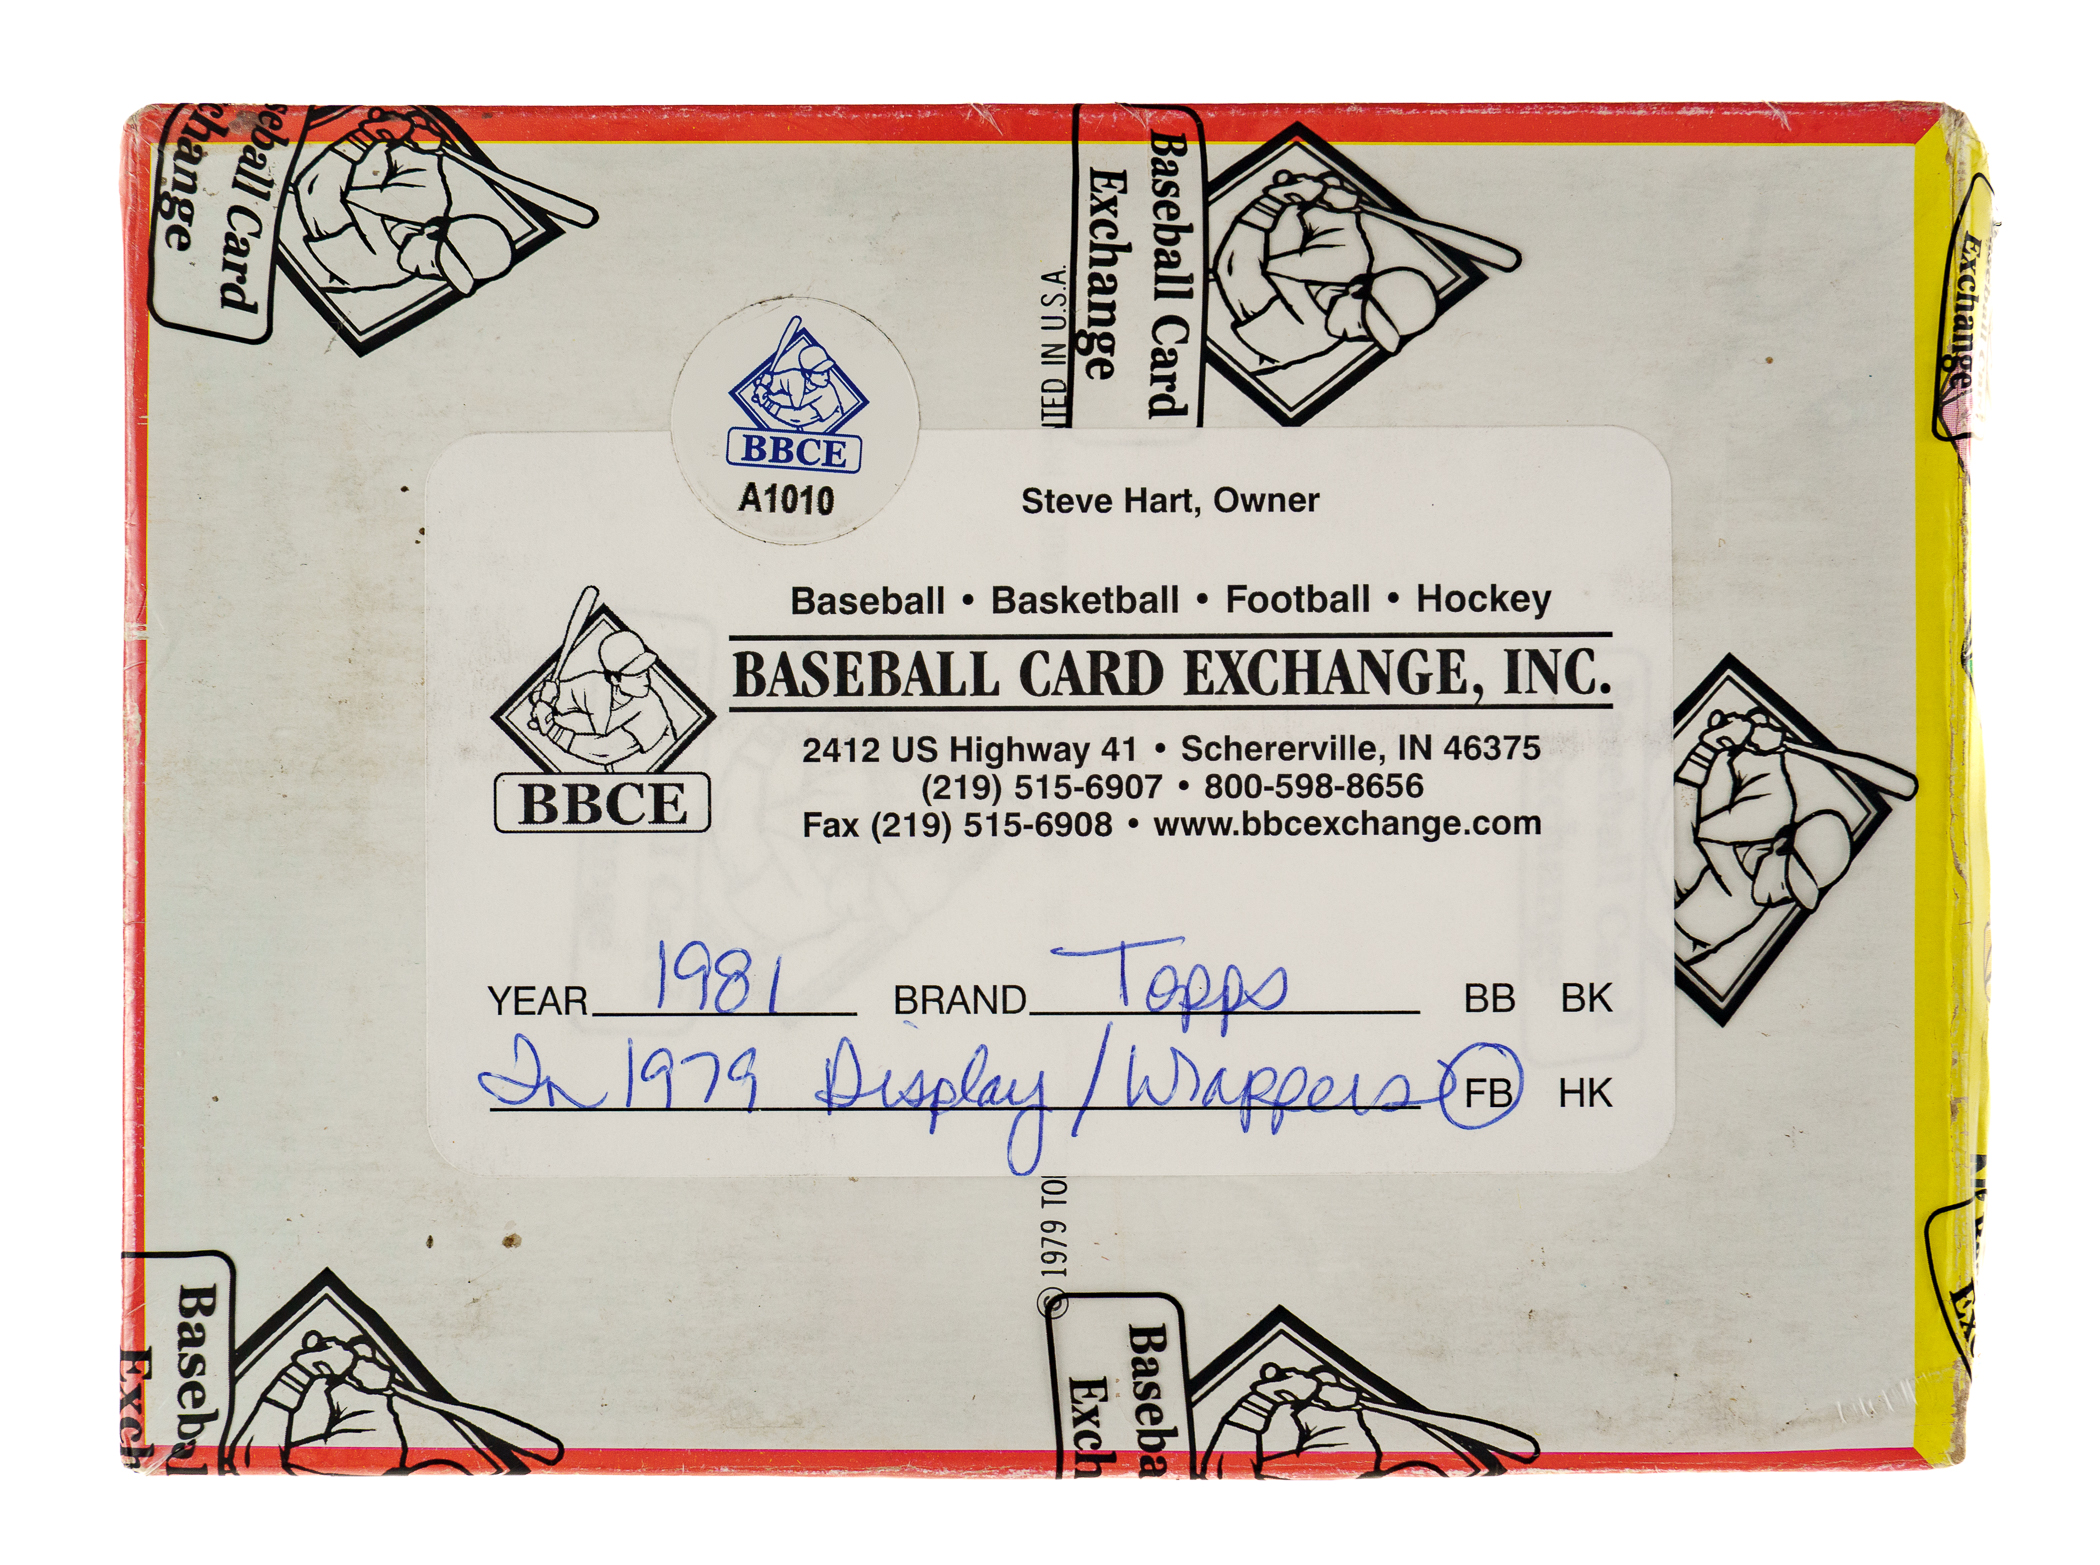 Baseball Card
Exchange
Baseball Card
Exchange
Exchange
TED IN U.S.A.
BBCE
A1010
Steve Hart, Owner
Baseball • Basketball • Football • Hockey
BASEBALL CARD EXCHANGE, INC.
2412 US Highway 41 • Schererville, IN 46375
(219) 515-6907 • 800-598-8656
Fax (219) 515-6908 • www.bbcexchange.com
BBCE
YEAR 1981 BRAND Topps BB BK
In 1979 Display/Wrappers FB HK
© 1979 TO
Basebal
Exch
Baseba
Exch
Exc